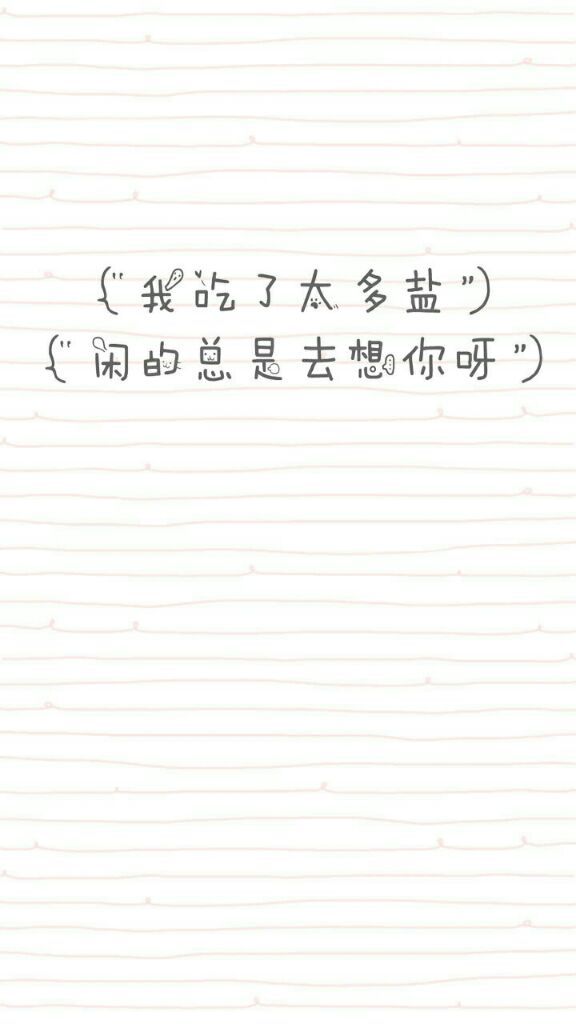 {“我吃了太多盐”}
{“闲的总是去想你呀”}